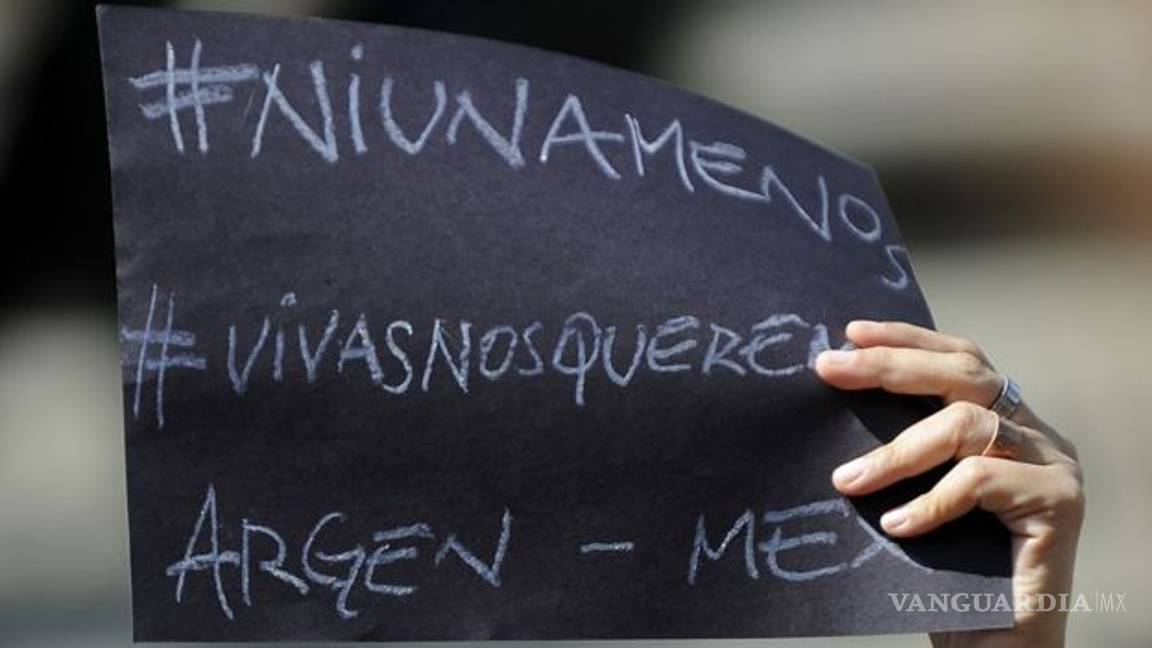 #NiUNAMENOS
#ViVASNOSQUEREN
ARGEN - MEX
VANGUARDIA|MX